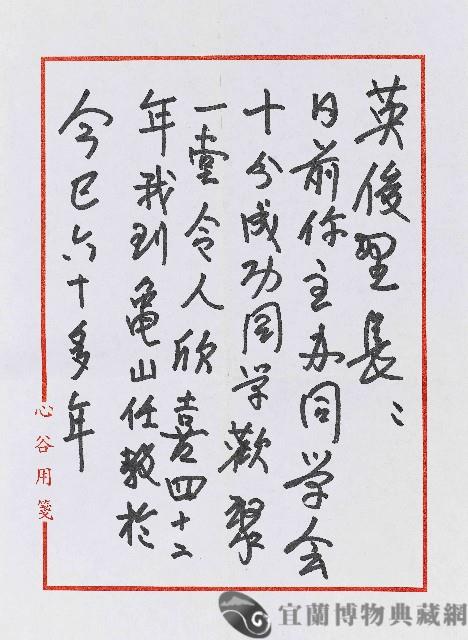 英俊里長:
日前你主办同学会
十分成功同学歡聚
一堂令人欣喜四十二
年我到龜山任教於
今已六十多年
心谷用箋
宜蘭博物典藏網